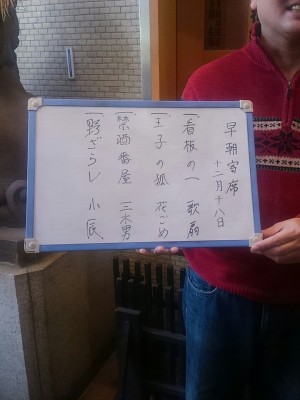 早朝寄席
十二月十八日
一、看板の一 歌扇
一、王子の狐 花ごめ
一、禁酒番屋 三木男
一、野ざらし 小辰